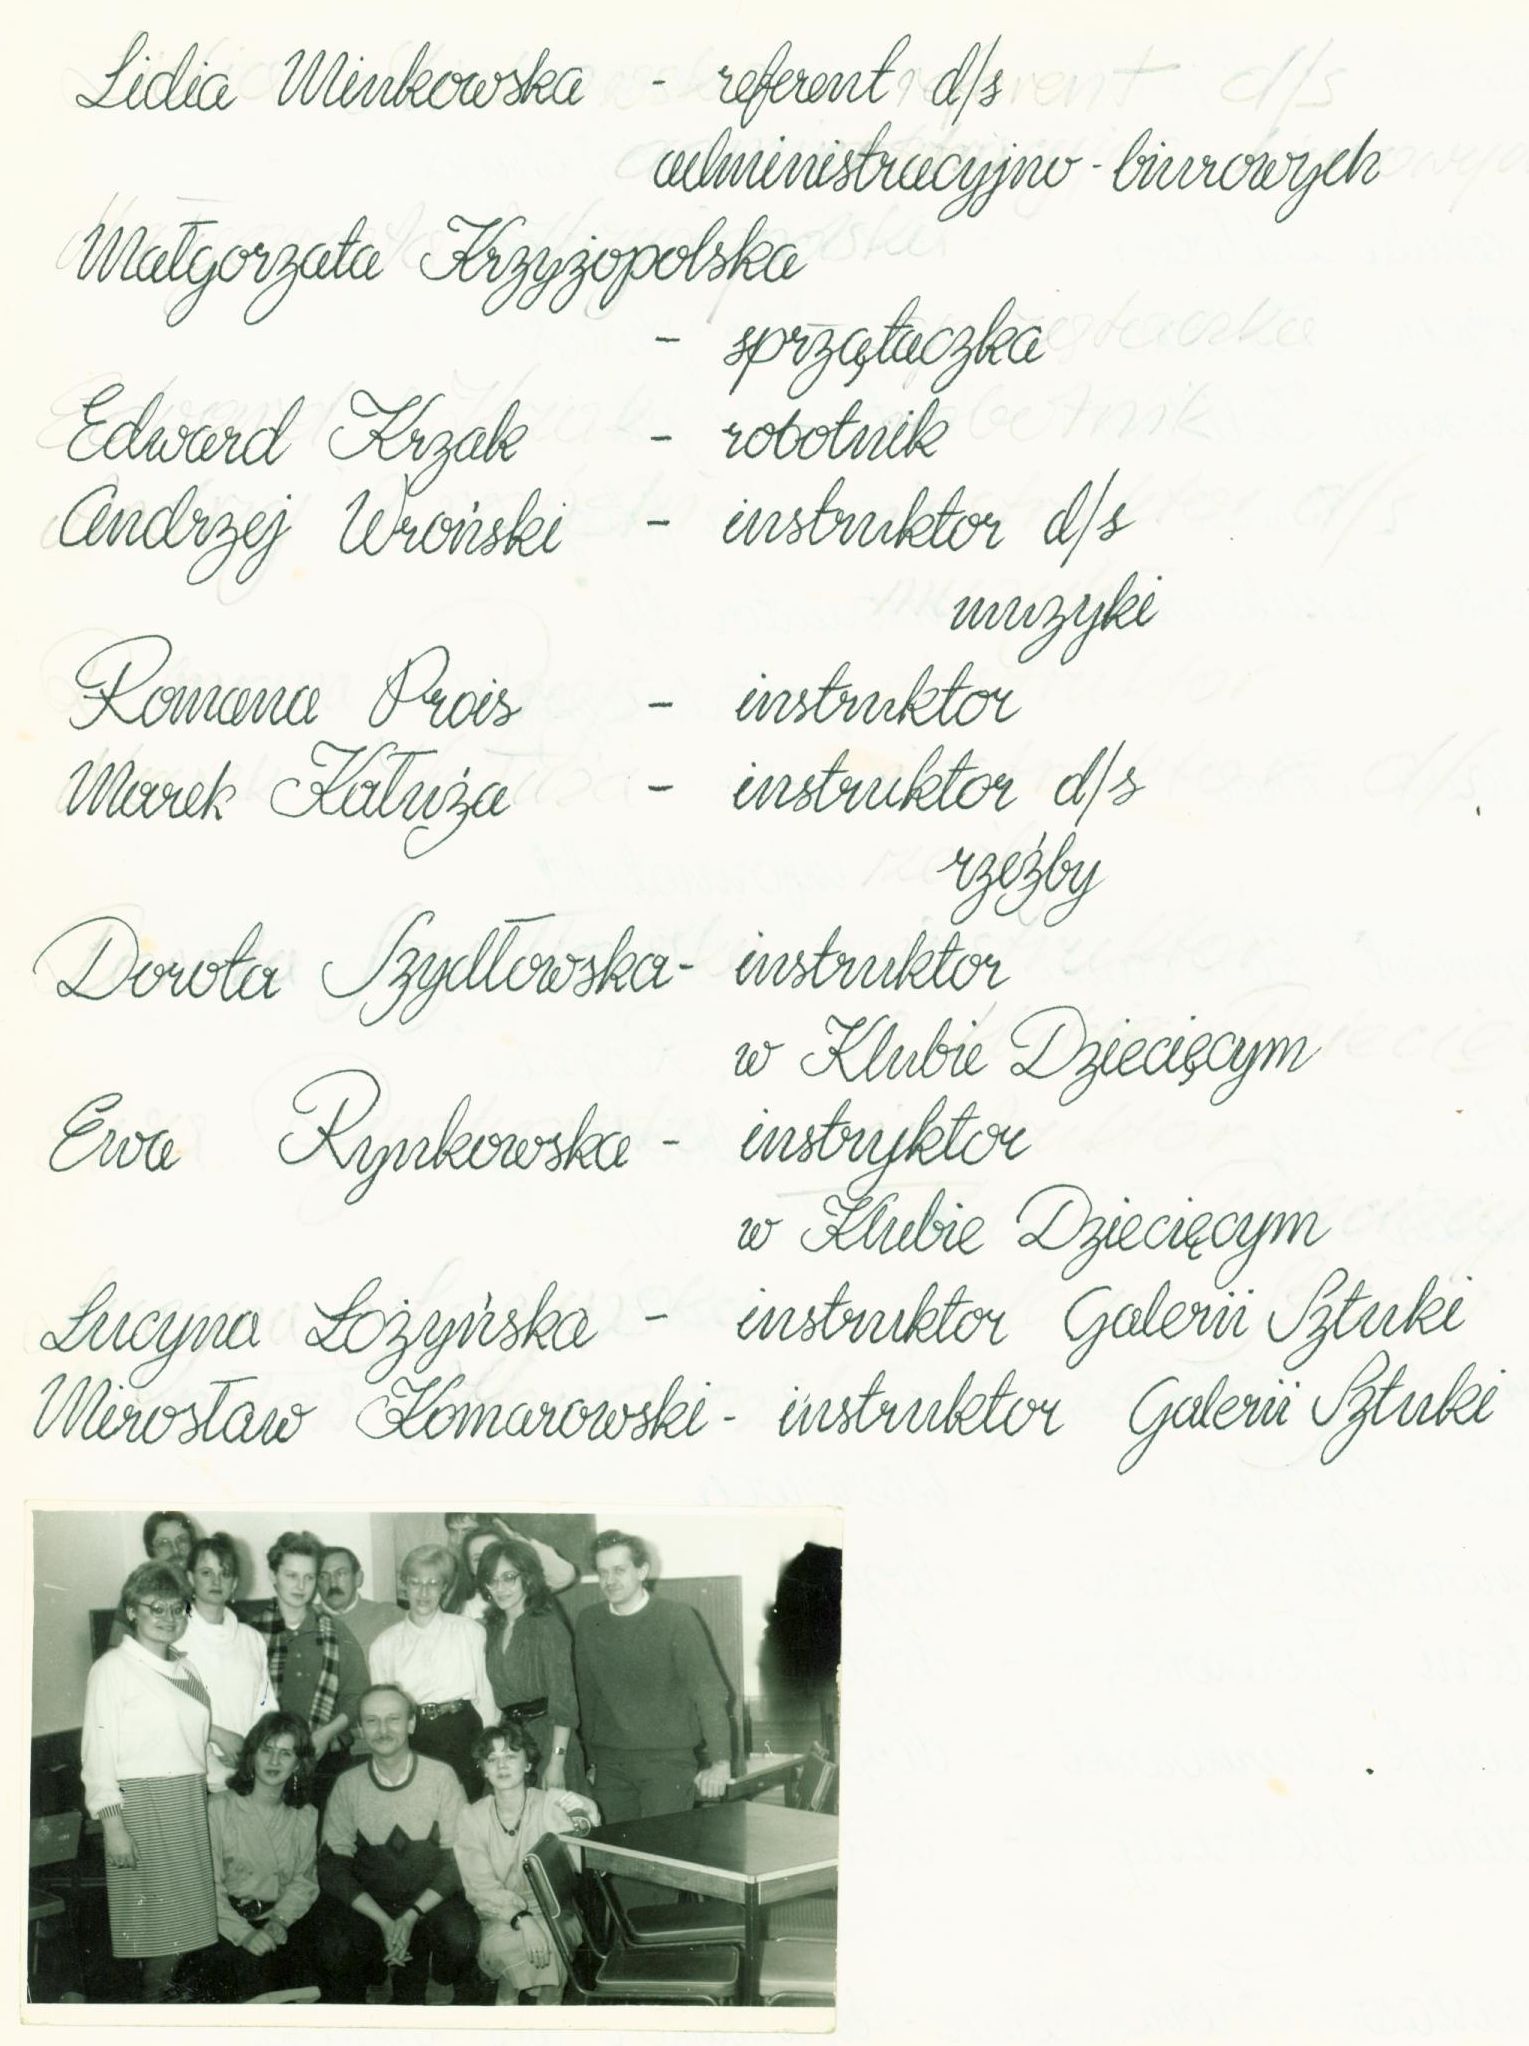 Lidia Minkowska - referent d/s
administracyjno-biurowych
Małgorzata Krzyżopolska
- sprzątaczka
Edward Krzak - robotnik
Andrzej Wroński - instruktor d/s
muzyki
Romana Prois - instruktor
Marek Kałuża - instruktor d/s
rzeźby
Dorota Szydłowska - instruktor
w Klubie Dziecięcym
Ewa Rynkowska - instryktor
w Klubie Dziecięcym
Lucyna Łożyńska - instruktor Galerii Sztuki
Mirosław Komarowski - instruktor Galerii Sztuki